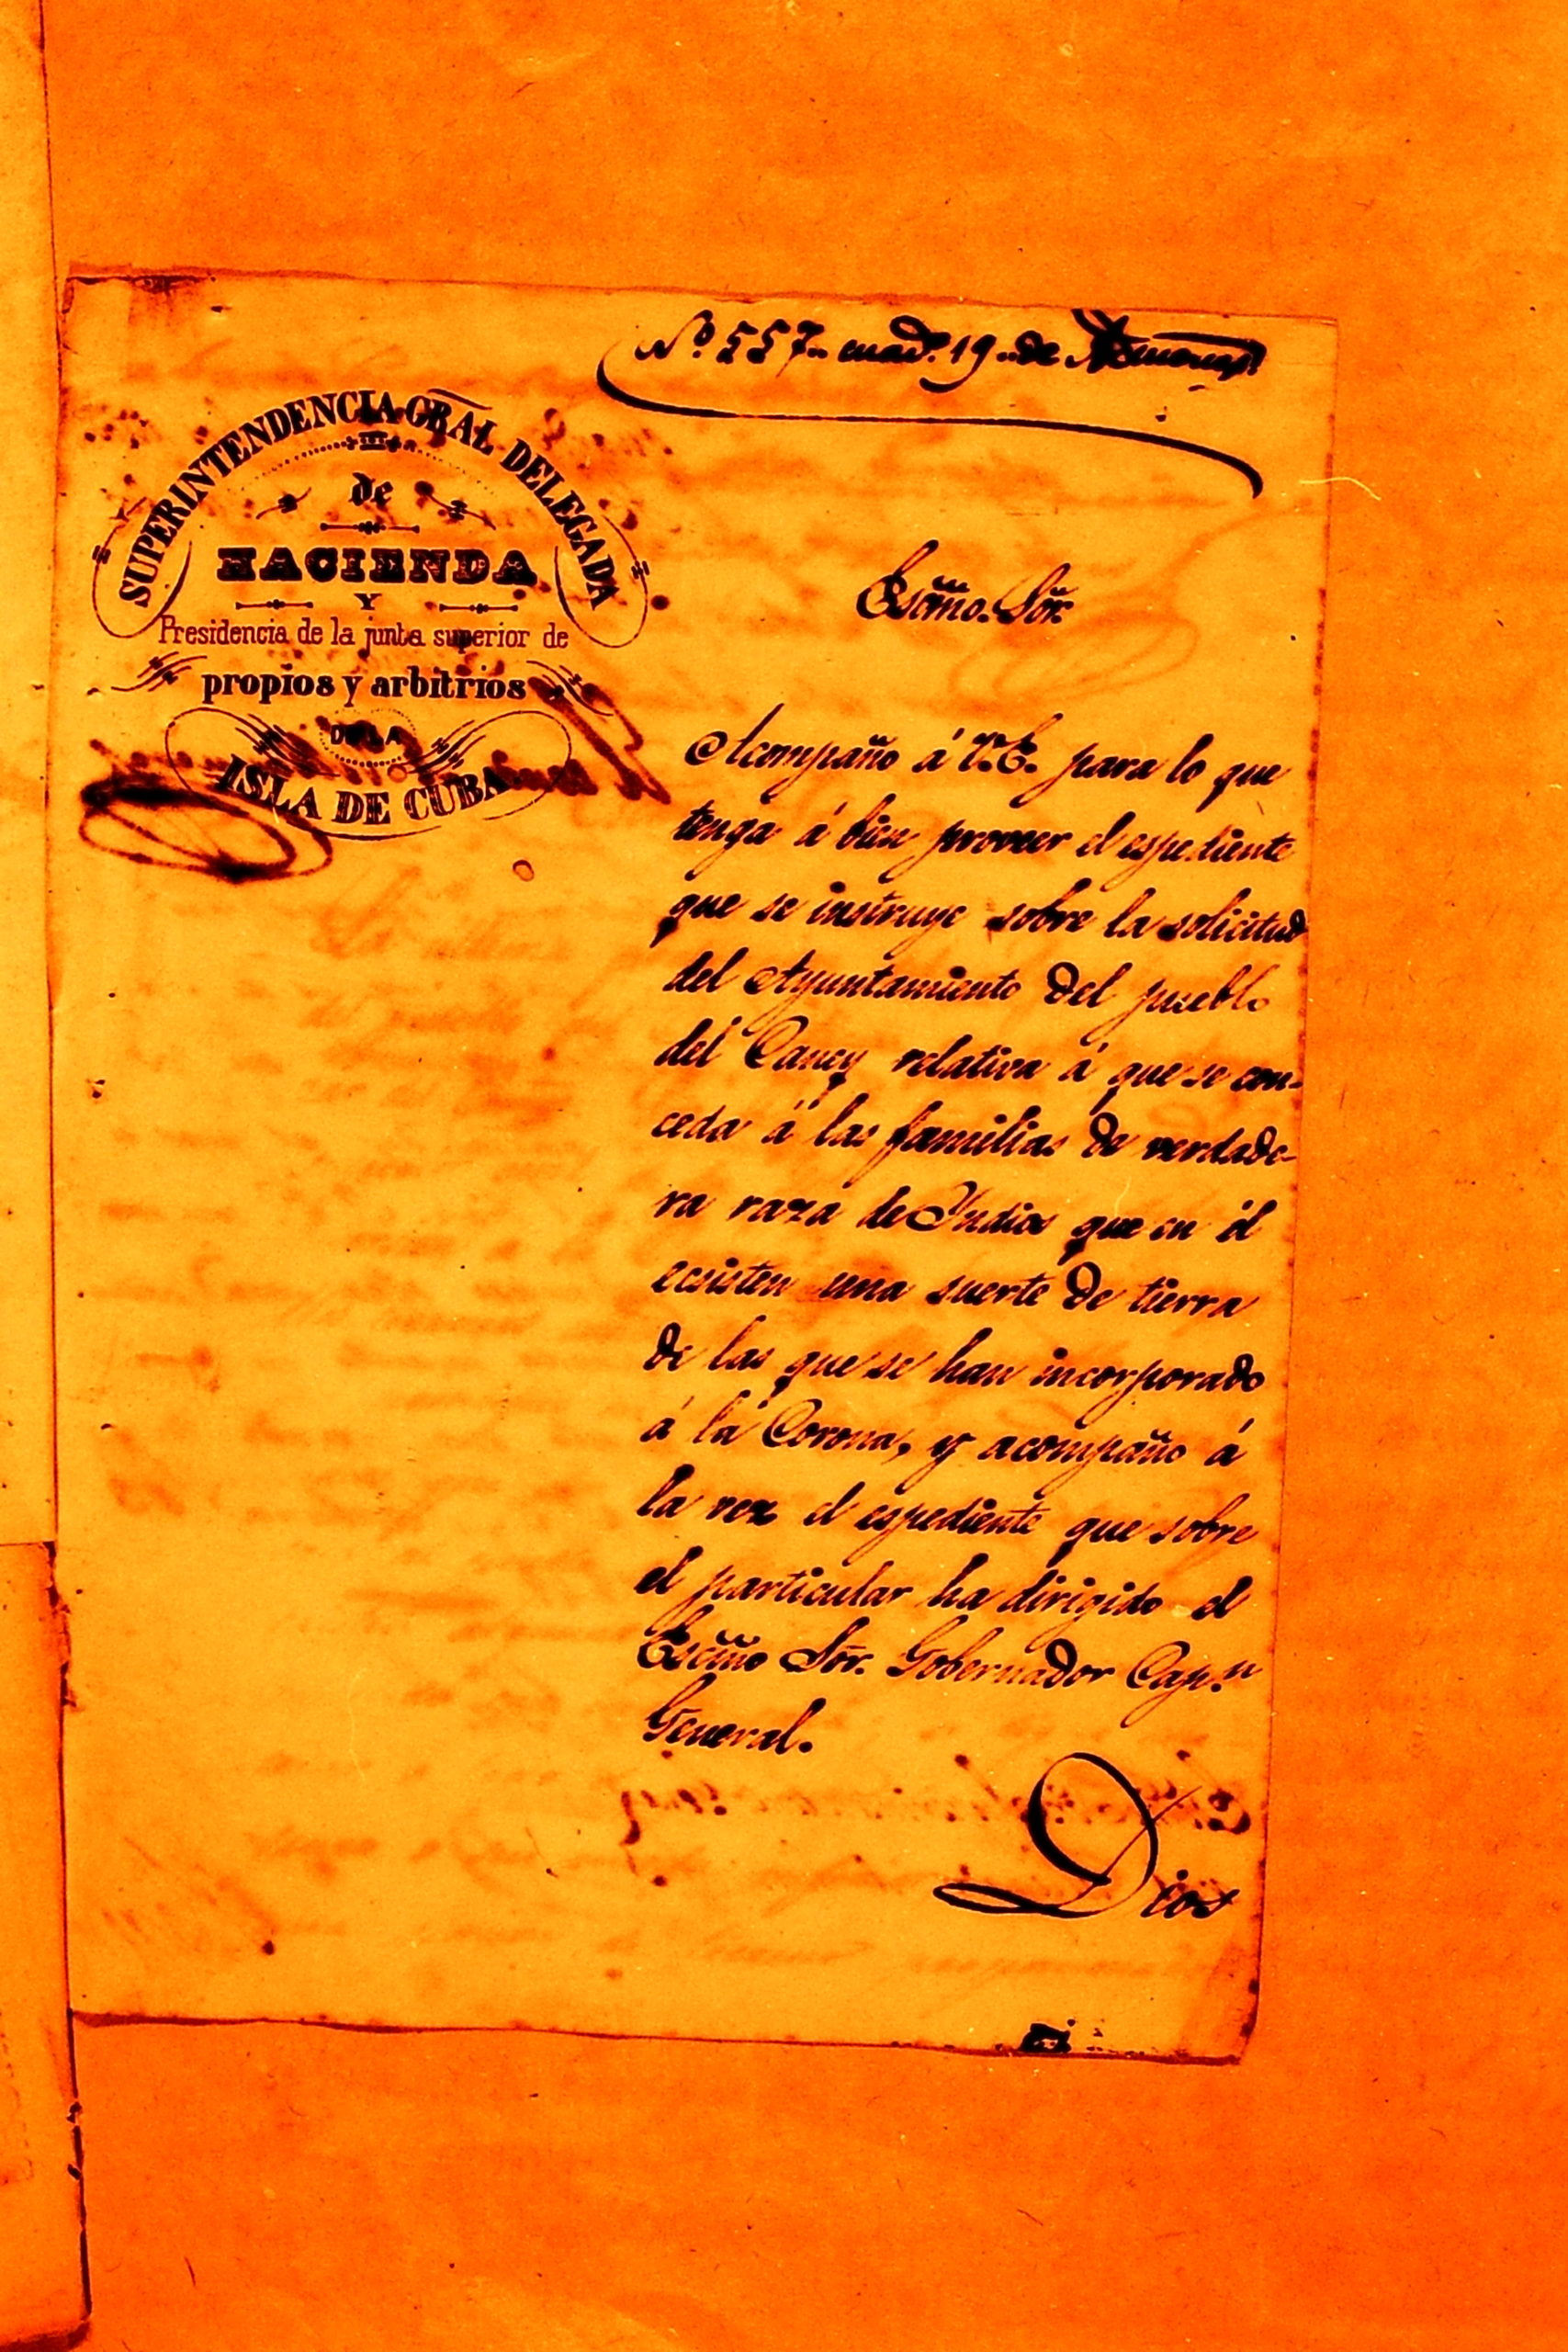 Nº 557.. cuadº 19.. de
SUPERINTENDENCIA GRAL DELEGADA
de
HACIENDA
Y
Presidencia de la junta superior de
propios y arbitrios
DE LA
ISLA DE CUBA
Escm̃o. Sõr.
Acompaño á V.E. para lo que
tenga á bien proveer el espediente
que se instruye sobre la solicitud
del Ayuntamiento del pueblo
del Caney relativa á que se con-
ceda á las familias de verdade-
ra raza de Yndios que en él
ecsisten una suerte de tierra
de las que se han incorporado
á la Corona, y acompaño á
la vez el espediente que sobre
el particular ha dirigido el
Escm̃o Sõr. Gobernador Cap.n
General.
Dios